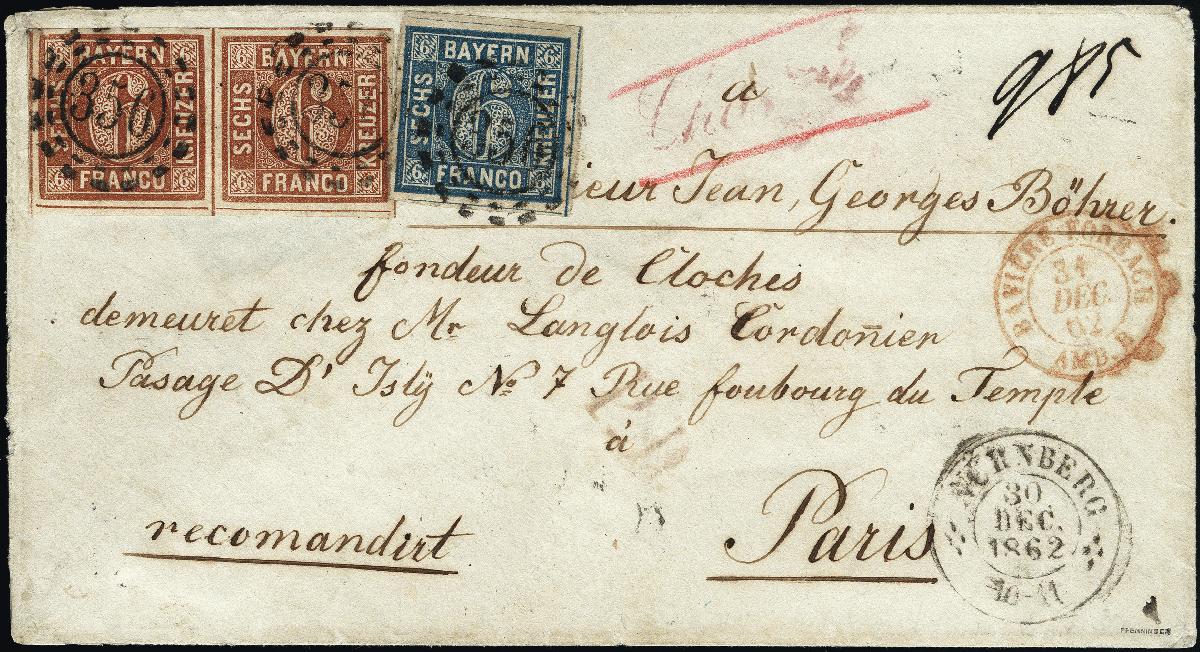 BAYERN
SECHS
KREUZER
FRANCO
6 6 6 6
356
BAYERN
SECHS
KREUZER
FRANCO
6 6 6 6
BAYERN
SECHS
KREUZER
FRANCO
6 6 6 6
à
985
Jean, Georges Böhrer.
fondeur de Cloches
demeuret chez Mr Langlois Cordoñier
Pasage D' Islÿ No 7 Rue foubourg du Temple
à
Paris
recomandirt
BAVIÈRE FORBACH
31
DEC.
62
AMB. B
NÜRNBERG
30
DEC.
1862
10-11
PFENNINGER